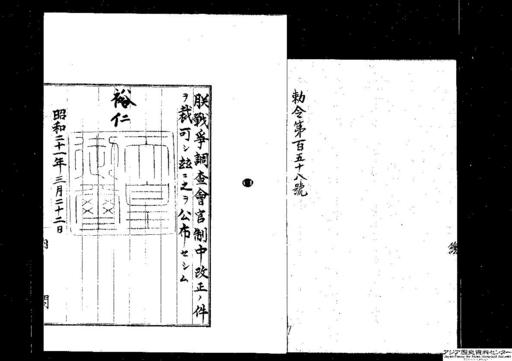 勅令第百五十八號
朕戰爭調査會官制中改正ノ件
ヲ裁可シ玆ニ之ヲ公布セシム
裕仁
昭和二十一年三月二十二日
アジア歴史資料センター